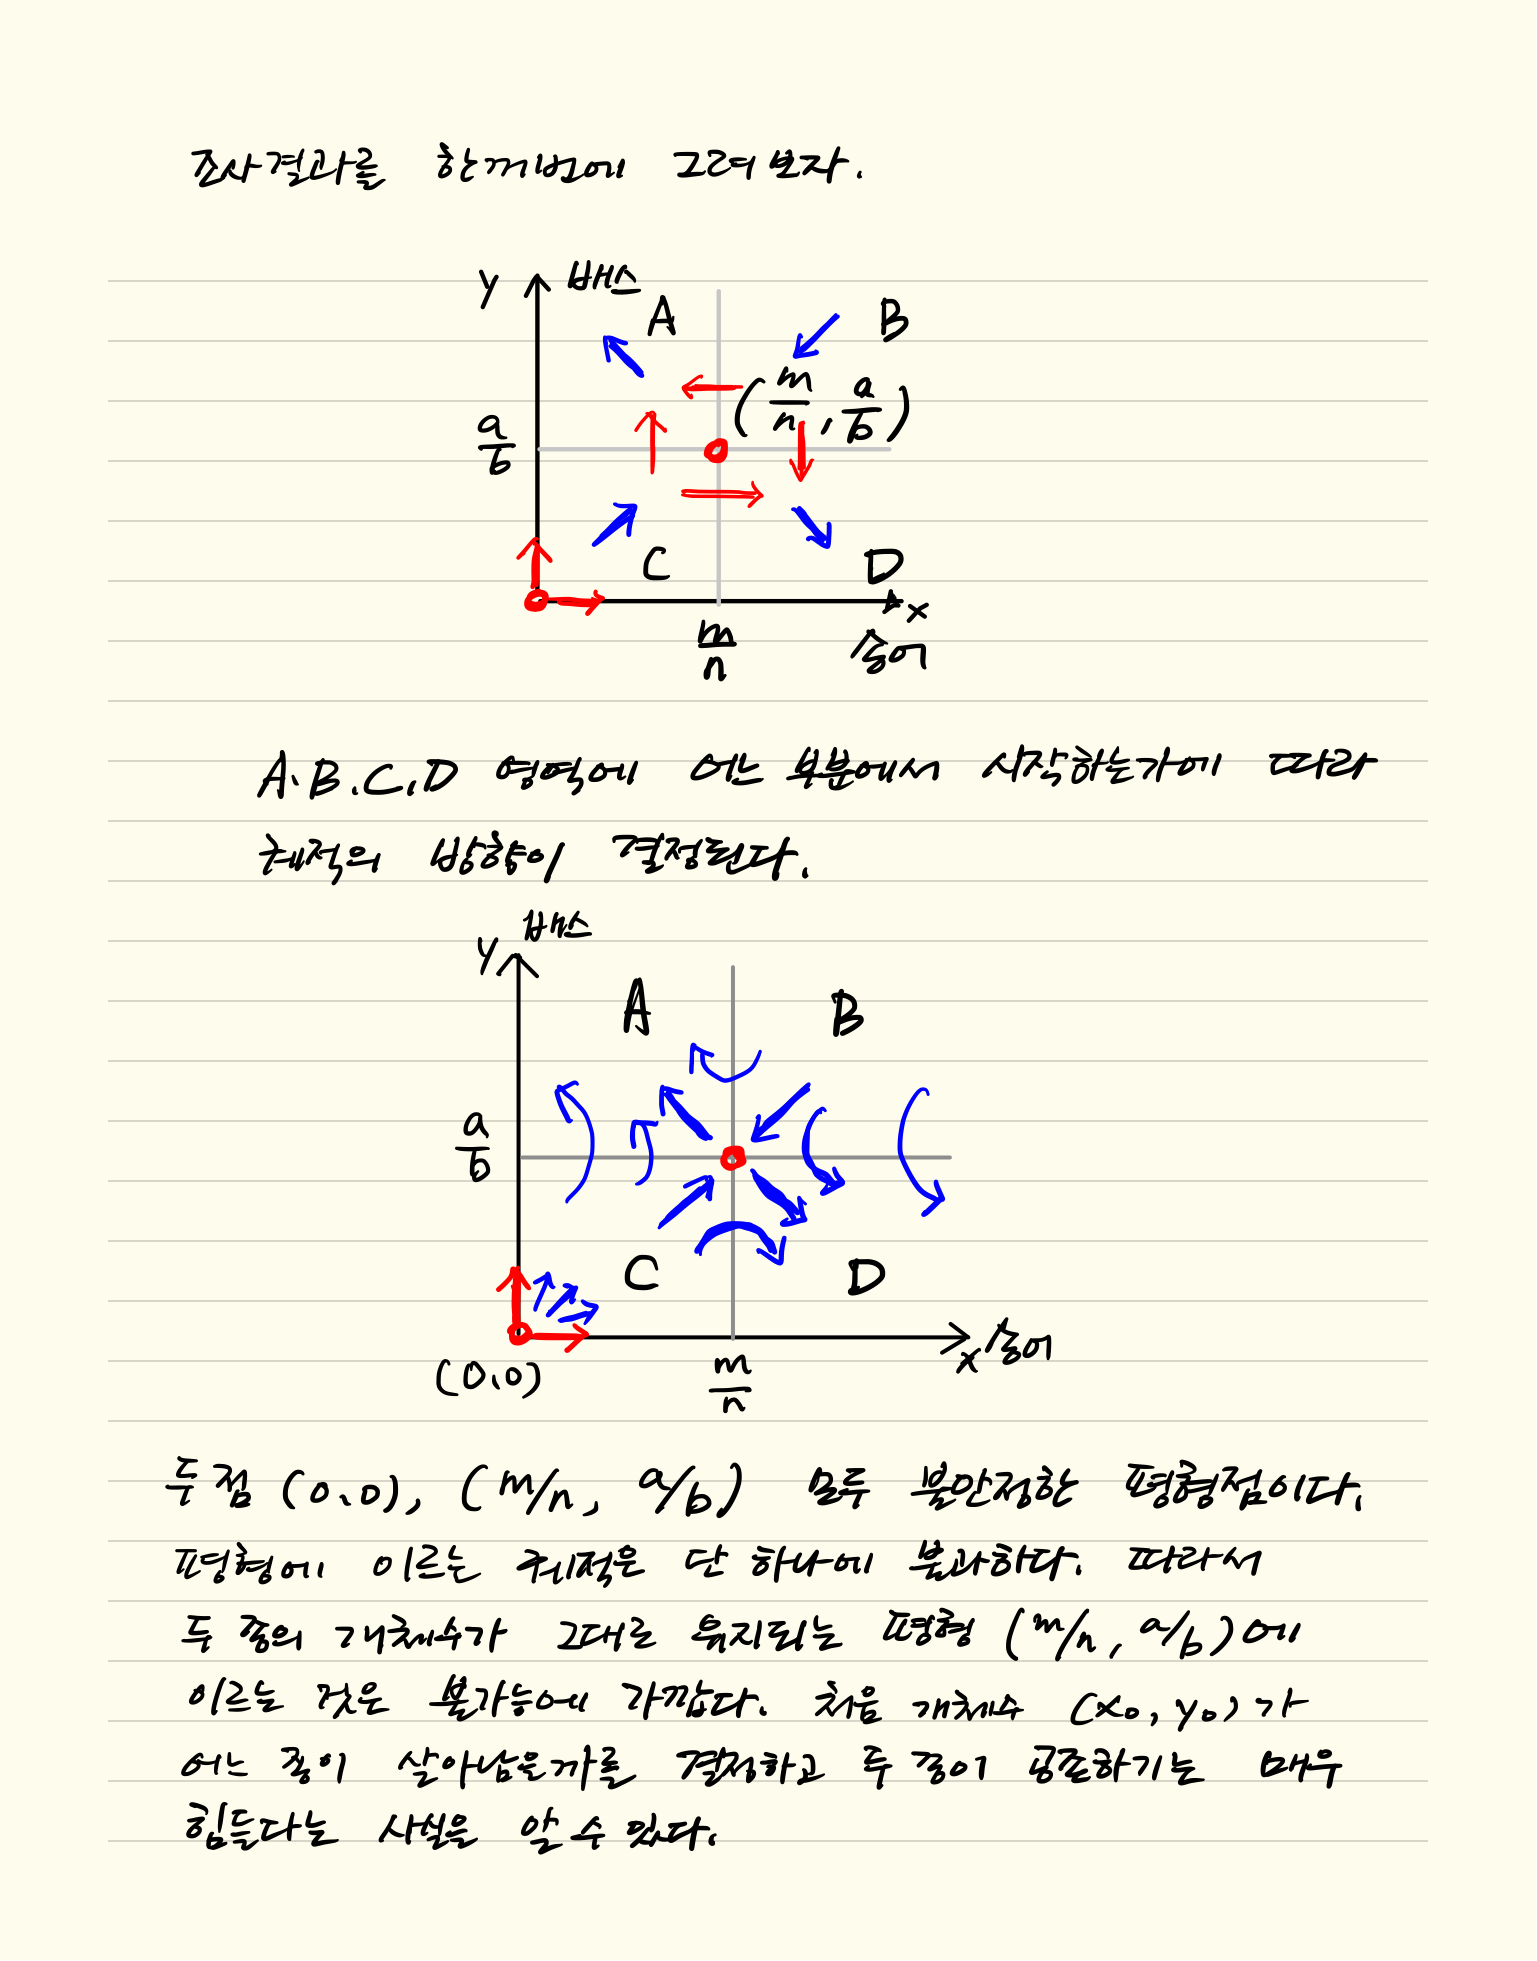 조사결과를 한꺼번에 그려보자.
y 배스
A B
(m/n, a/b)
a/b
C D
x
m/n 송어
A.B.C.D 영역에 어느 부분에서 시작하는가에 따라
궤적의 방향이 결정된다.
y 배스
A B
a/b
C D
(0.0) m/n x 송어
두 점 (0.0), (m/n, a/b) 모두 불안정한 평형점이다.
평형에 이르는 궤적은 단 하나에 불과하다. 따라서
두 종의 개체수가 그대로 유지되는 평형 (m/n, a/b)에
이르는 것은 불가능에 가깝다. 처음 개체수 (x₀, y₀)가
어느 종이 살아남을까를 결정하고 두 종이 공존하기는 매우
힘들다는 사실을 알 수 있다.